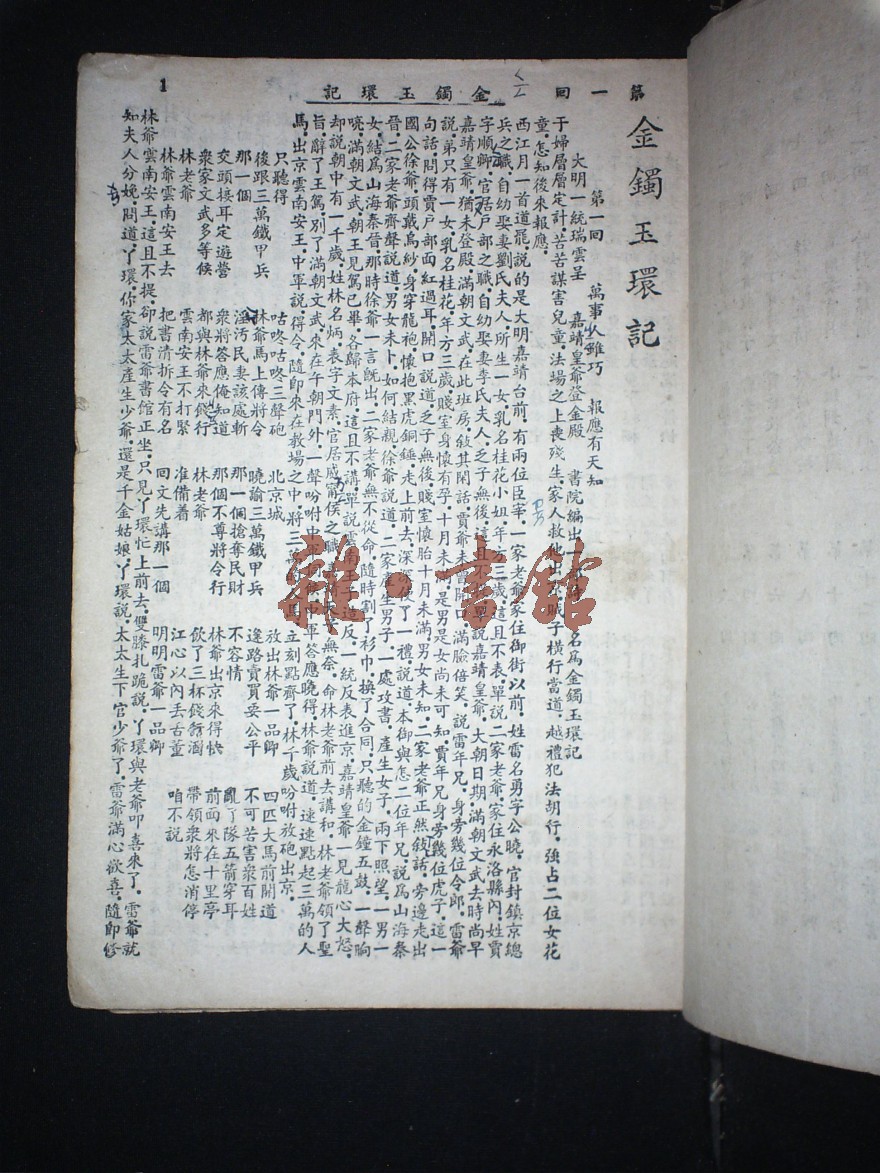 第一回 金鐲玉環記 1
金鐲玉環記
第一回 萬事㕥難巧 報應有天知
大明一統瑞雲呈 嘉靖皇爺登金殿 書院編出一 名為金鐲玉環記
于婦層層定計。苦苦謀害兒童。法場之上喪殘生。家人救他出 賊子橫行當道。越禮犯法胡行。強占二位女花
童。怎知後來報應。
西江月一首道罷。說的是大明嘉靖台前。有兩位臣宰。一家老爺家住御街以前。姓雷名勇字公曉。官封鎮京總
兵之職。自幼娶妻劉氏夫人。所生一女。乳名桂花小姐。年方三歲。這且不表。單說二家老爺家住永洛縣內。姓賈
字順卿。官居戶部之職。自幼娶妻李氏夫人。乏子無後。這且不 單說嘉靖皇爺。大朝日期。滿朝文武去時尚早
嘉靖皇爺。猶未登殿。滿朝文武。在此班房。敍其閑話。賈爺未曾開口。滿臉倍笑。說雷年兄。身旁幾位令郎。雷爺
說。弟只有一女。乳名桂花。年方三歲。賤室身懷有孕。十月未 是男是女尚未可知。賈年兄身旁幾位虎子。這一
句話。問得賈戶部面紅過耳。開口說道。乏子無後。賤室懷胎十月未滿男女未知。二家老爺正然敍話。旁邊走出
國公徐爺。頭戴烏紗。身穿龍袍懷抱黑虎銅錘。走上前去。深 使了一禮。說道。本御與怎二位年兄。說為山海秦
晉。二家老爺齊聲說道。男女未卜。如何結親徐爺說道。二家 生男子。一處攻書。產生女子。兩下照望。一男一
女。結為山海秦晉。那時徐爺一言旣出。二家老爺無不從命。隨時割了衫巾。換了合同。只聽的金鐘五鼓。一聲响
喨。滿朝文武。朝王見駕已畢。各歸本府。這且不講。單說雲南王子造反。一統反表進京。嘉靖皇爺一見龍心大怒。
却說朝中有一千歲。姓林名炳。表字文素。官居威甯侯之職 無余。命林老爺前去講和。林老爺領了聖
旨。辭了王駕。別了滿朝文武。來在午朝門外。一聲吩咐中軍 中軍答應曉得。林爺說道。速速點起三萬的人
馬。出京雲南安王。中軍說。得令。隨即來在教場之中將三萬 人馬立刻點齊了。林千歲吩咐放砲出京。
只聽得 咕咚咕咚三聲砲 北京城 放出林爺一品卿 四匹大馬前開道
後跟三萬鐵甲兵 林爺馬上傳將令 曉諭三萬鐵甲兵 逢路賣買要公平 不可苦害衆百姓
那一個 淫汚民妻該處斬 那一個搶奪民財 不容情 亂了隊五箭穿耳
交頭接耳定遊營 衆將答應俺知道 那個不尊將令行 林爺出京來得快 前面來在十里亭
衆家文武多等候 都與林爺來餞行 林老爺 飲了三杯餞餞酒 帶領衆將怎消停
林老爺 雲南安王不打緊 准備着 江心以內丟古董 咱不說
林爺雲南安王去 把書清拆令有名 回文先講那一個 明明雷爺一品卿
林爺雲南安王。這且不提。卻說雷爺書館正坐。只見丫環忙上前去。雙膝扎跪說。丫環與老爺叩喜來了。雷爺就
知夫人分娩。問道。丫環。你家太太產生少爺。還是千金姑娘。丫環說。太太生下官少爺了。雷爺滿心歡喜。隨即修
雜·書館